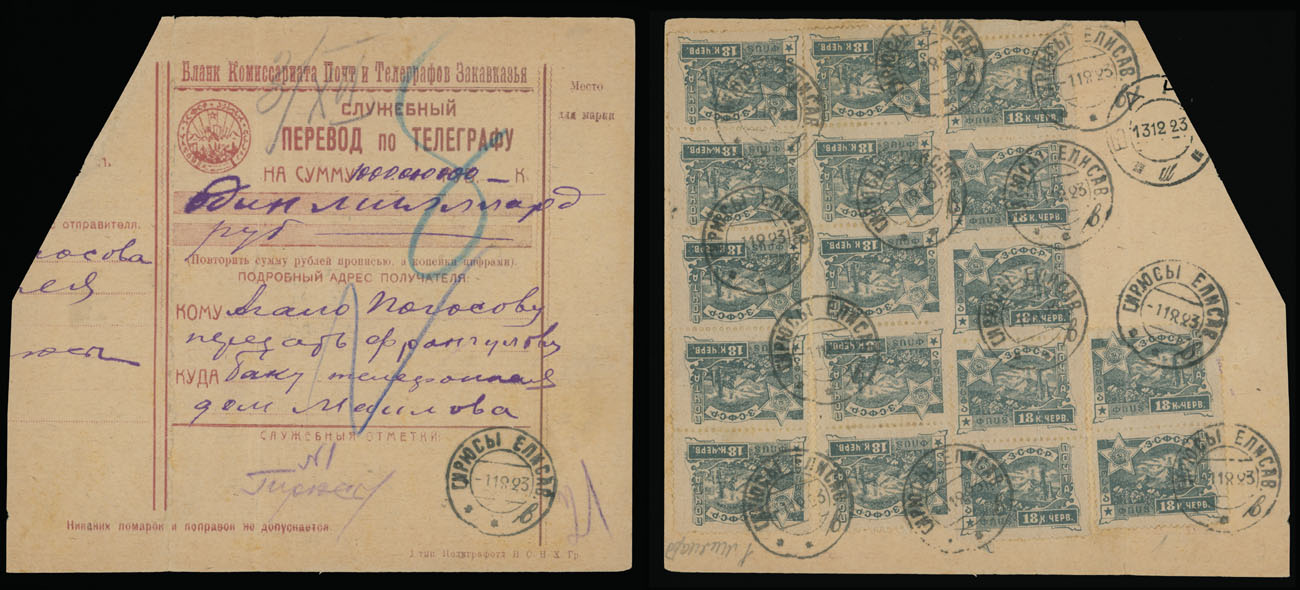 Бланк Комиссариата Почт и Телеграфов Закавказья
СЛУЖЕБНЫЙ
ПЕРЕВОД по ТЕЛЕГРАФУ
Место
для марки
НА СУММУ 1000000000 — К.
Один миллиард
руб
отправителя.
(Повторить сумму рублей прописью, а копейки цифрами).
ПОДРОБНЫЙ АДРЕС ПОЛУЧАТЕЛЯ:
КОМУ Погосову
передать Франгулову
КУДА Баку телефонная
дом
СЛУЖЕБНЫЯ ОТМЕТКИ:
N1
Гирюсы
ГИРЮСЫ ЕЛИСАВ
-1 12 23
в
21
Никаких помарок и поправок не допускается.
1 тип. Полиграфотд В. С. Н. Х. Гр.
18 К. ЧЕРВ.
ЗСФСР
ПОЧТА
ГИРЮСЫ ЕЛИСАВ
-1 12 23
в
13 12 23
1 миллиард